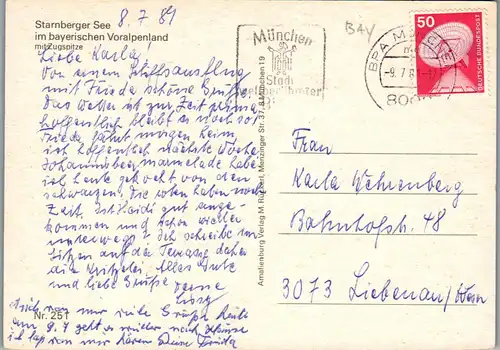 Starnberger See
im bayerischen Voralpenland
mit Zugspitze
8.7.81
Liebe Karla!
Von einem Schiffsausflug
mit Frieda schöne Grüße.
Das Wetter ist zur Zeit prima
hoffentlich bleibt es noch so!
Frieda fährt morgen heim
ist hoffentlich nächste Woche
Johannisbeermarmelade habe
ich heute gekocht von den
schwarzen, die roten haben noch
Zeit. Ist Haidi gut ange-
kommen und schon wieder
unterwegs? Ich schreibe im
Sitzen auf der Terrasse daher
die Alles Gute
und liebe Grüße
Nr. 251
Auch von mir viele Grüße
am 9.7 geht es wieder nach Hause
ich von mir hören Deine Frieda
Amalienburg Verlag M. Menzinger Str. 37, 8 München 19
BAY
München
Stadt
BPA M
-9.7.8
50
DEUTSCHE BUNDESPOST
Frau
Karla Wehrenberg
Bahnhofstr. 48
3073 Liebenau/Wesn